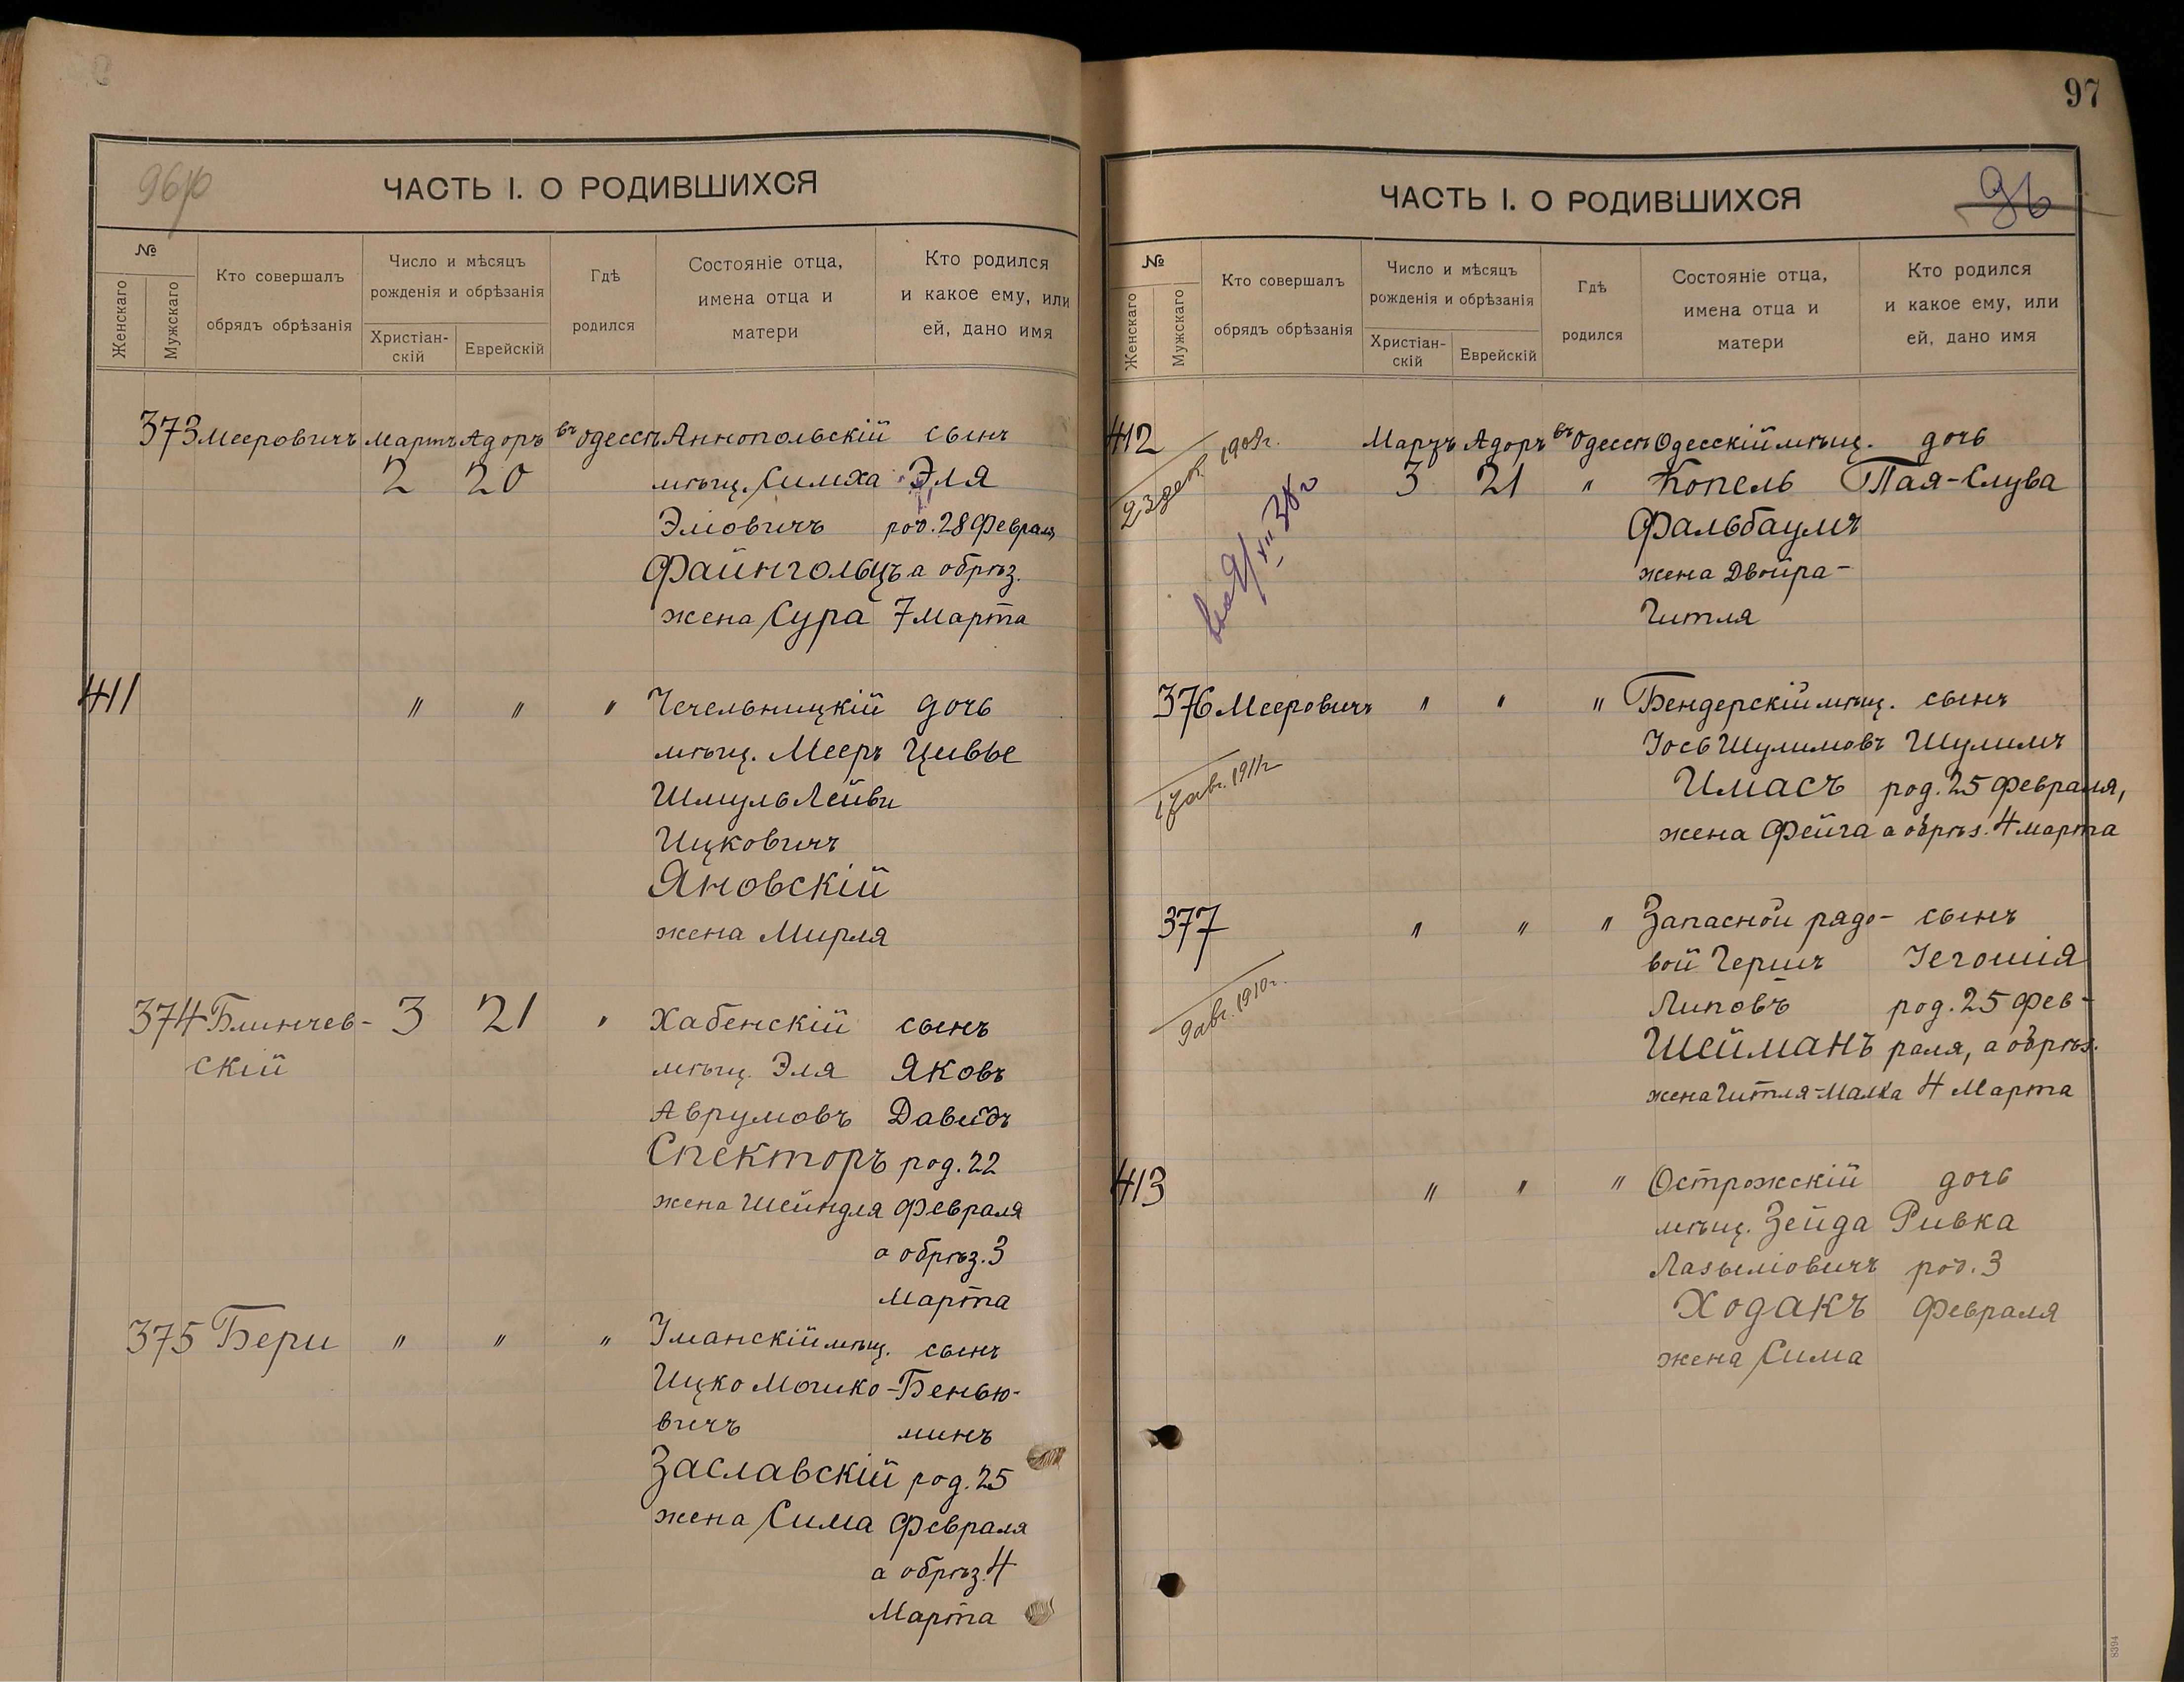 96/о
ЧАСТЬ I. О РОДИВШИХСЯ
№
Женскаго
Мужскаго
Кто совершалъ
обрядъ обрѣзанія
Число и мѣсяцъ
рожденія и обрѣзанія
Христіан-
скій
Еврейскій
Гдѣ
родился
Состояніе отца,
имена отца и
матери
Кто родился
и какое ему, или
ей, дано имя
373 Мееровичъ Мартъ Адоръ въ Одессѣ Аннопольскій сынъ
2 20 мѣщ. Симха Эля
Эліовичъ род. 28 Февраля
Файнгольцъ а обрѣз.
жена Сура 7 Марта
411 " " " Чечельницкій дочь
мѣщ. Мееръ Цивье
Шмуль Лейви
Ицковичъ
Яновскій
жена Мирля
374 Блинчев- 3 21 " Хабенскій сынъ
скій мѣщ. Эля Яковъ
Аврумовъ Давидъ
Спекторъ род. 22
жена Шейндля Февраля
а обрѣз. 3
Марта
375 Бери " " " Уманскій мѣщ. сынъ
Ицко Мошко- Бенью-
вичъ минъ
Заславскій род. 25
жена Сима Февраля
а обрѣз. 4
Марта
97
ЧАСТЬ I. О РОДИВШИХСЯ
96
№
Женскаго
Мужскаго
Кто совершалъ
обрядъ обрѣзанія
Число и мѣсяцъ
рожденія и обрѣзанія
Христіан-
скій
Еврейскій
Гдѣ
родился
Состояніе отца,
имена отца и
матери
Кто родился
и какое ему, или
ей, дано имя
412 Мартъ Адоръ въ Одессѣ Одесскій мѣщ. дочь
1909г.
3 21 " Копель Тая-Слува
Фальбаумъ
жена Двойра-
Гитля
376 Мееровичъ " " " Бендерскій мѣщ. сынъ
Іось Шулимовъ Шулимъ
17 авг. 1911г
Имасъ род. 25 Февраля,
жена Фейга а обрѣз. 4 Марта
377 " " " Запасной рядо- сынъ
вой Гершъ Іегошія
9 авг. 1910г.
Липовъ род. 25 Фев-
Шейманъ раля, а обрѣз.
жена Гитля-Малка 4 Марта
413 " " " Острожскій дочь
мѣщ. Зейда Ривка
Лазыліовичъ род. 3
Ходакъ Февраля
жена Сима
8394